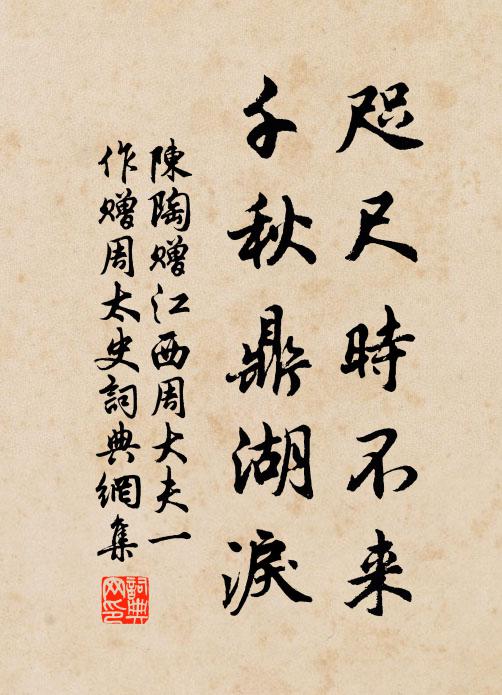 咫尺時不来
千秋鼎湖淚
陳陶贈江西周大夫一
作贈周太史詞典網集
詞典
网印